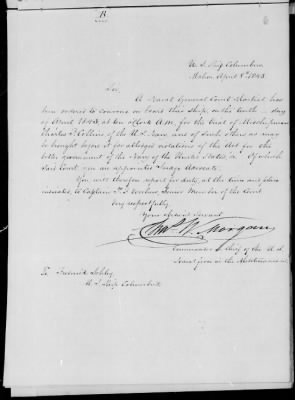 B
6
U. S. Ship Columbus
Mahon April 8th 1843
Sir,
A Naval General Court Martial has
been ordered to convene on board this Ship, on the tenth day
of April 1843, at ten o'clock A.M., for the trial of Midshipman
Charles P. Collins of the U. S. Navy, and of such others as may
be brought before it for alleged violations of the Act for the
better government of the Navy of the United States, &c. Of which
said Court you are appointed Judge Advocate.
You will therefore report for duty, at the time and place
indicated, to Captain Senior Member of the Court
Very respectfully
Your Obedient Servant
Chas W. Morgan
Commander in Chief of the U. S.
Naval forces in the Mediterranean
To Frederick
U. S. Ship Columbus